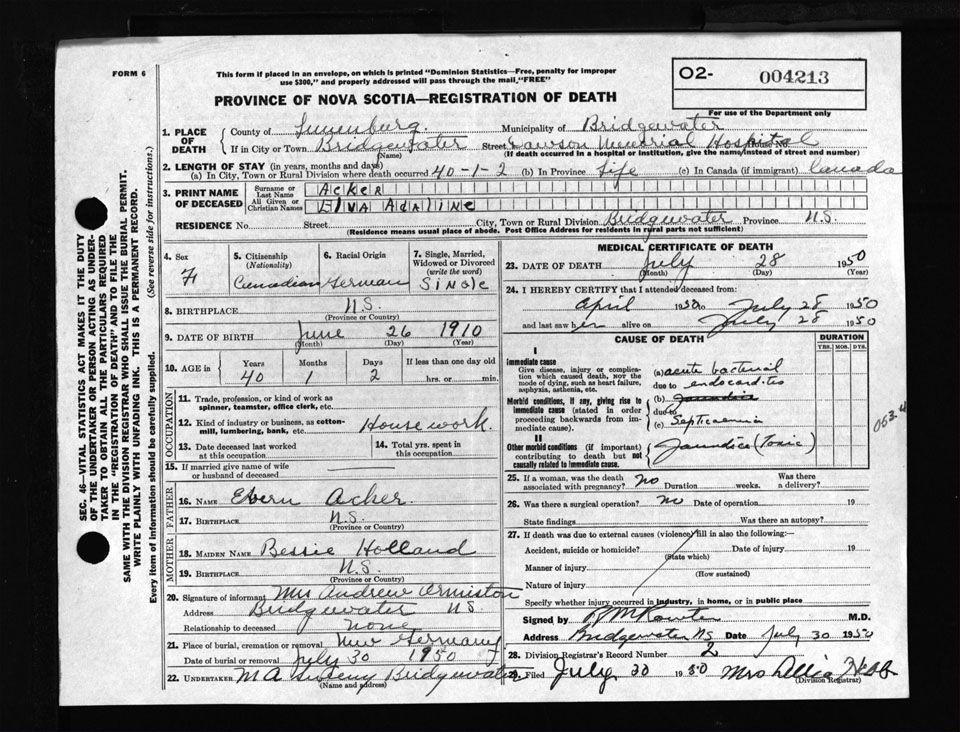 FORM 6
This form if placed in an envelope, on which is printed "Dominion Statistics—Free, penalty for improper
use $300," and properly addressed will pass through the mail, "FREE"
O2- 004213
For use of the Department only
PROVINCE OF NOVA SCOTIA—REGISTRATION OF DEATH
1. PLACE OF DEATH
County of Lunenburg. Municipality of Bridgewater
If in City or Town Bridgewater Street Dawson Memorial Hospital House No.
(Name) (If death occurred in a hospital or institution, give the name instead of street and number)
2. LENGTH OF STAY (in years, months and days)
(a) In City, Town or Rural Division where death occurred 40-1-2 (b) In Province life (c) In Canada (if immigrant) Canada
3. PRINT NAME OF DECEASED
Surname or Last Name ACKER
All Given or Christian Names ELVA ADALINE
RESIDENCE No. Street City, Town or Rural Division Bridgewater Province N.S.
(Residence means usual place of abode. Post Office Address for residents in rural parts not sufficient)
4. Sex F
5. Citizenship (Nationality) Canadian
6. Racial Origin German
7. Single, Married, Widowed or Divorced (write the word) Single
8. BIRTHPLACE N.S.
(Province or Country)
9. DATE OF BIRTH June 26 1910
(Month) (Day) (Year)
10. AGE in Years Months Days If less than one day old
40 1 2 hrs. or min.
OCCUPATION
11. Trade, profession, or kind of work as
spinner, teamster, office clerk, etc.
12. Kind of industry or business, as cotton-
mill, lumbering, bank, etc. Housework.
13. Date deceased last worked
at this occupation
14. Total yrs. spent in
this occupation
15. If married give name of wife
or husband of deceased
FATHER
16. NAME Acker.
17. BIRTHPLACE N.S.
(Province or Country)
MOTHER
18. MAIDEN NAME Bessie Holland
19. BIRTHPLACE N.S.
(Province or Country)
20. Signature of informant Mrs Andrew Ormiston
Address Bridgewater NS
Relationship to deceased none
21. Place of burial, cremation or removal New Germany
Date of burial or removal July 30 1950
22. UNDERTAKER M A Sweeny Bridgewater
(Name and address)
MEDICAL CERTIFICATE OF DEATH
23. DATE OF DEATH July 28 1950
(Month) (Day) (Year)
24. I HEREBY CERTIFY that I attended deceased from:
April 1950 to July 28 1950
and last saw her alive on July 28 1950
CAUSE OF DEATH
DURATION
YRS. MOS. DYS.
I
Immediate cause
Give disease, injury or complica-
tion which caused death, NOT the
mode of dying, such as heart failure,
asphyxia, asthenia, etc.
(a) acute bacterial
due to endocarditis
Morbid conditions, if any, giving rise to
immediate cause (stated in order
proceeding backwards from im-
mediate cause).
(b) Jaundice
due to
(c) Septicaemia
II
Other morbid conditions (if important)
contributing to death but not
causally related to immediate cause.
Jaundice (Toxic)
063-4
25. If a woman, was the death
associated with pregnancy? no Duration weeks. Was there
a delivery?
26. Was there a surgical operation? no Date of operation 19
State findings Was there an autopsy?
27. If death was due to external causes (violence) fill in also the following:—
Accident, suicide or homicide? Date of injury 19
(State which)
Manner of injury
(How sustained)
Nature of injury
Specify whether injury occurred in industry, in home, or in public place
Signed by M.D.
Address Bridgewater NS Date July 30 1950
28. Division Registrar's Record Number 2
29. Filed July 30 1950 Mrs
(Division Registrar)
SEC. 46—VITAL STATISTICS ACT MAKES IT THE DUTY
OF THE UNDERTAKER OR PERSON ACTING AS UNDER-
TAKER TO OBTAIN ALL THE PARTICULARS REQUIRED
IN THE "REGISTRATION OF DEATH" AND TO FILE THE
SAME WITH THE DIVISION REGISTRAR WHO SHALL ISSUE THE BURIAL PERMIT.
WRITE PLAINLY WITH UNFADING INK. THIS IS A PERMANENT RECORD.
Every item of information should be carefully supplied. (See reverse side for instructions.)